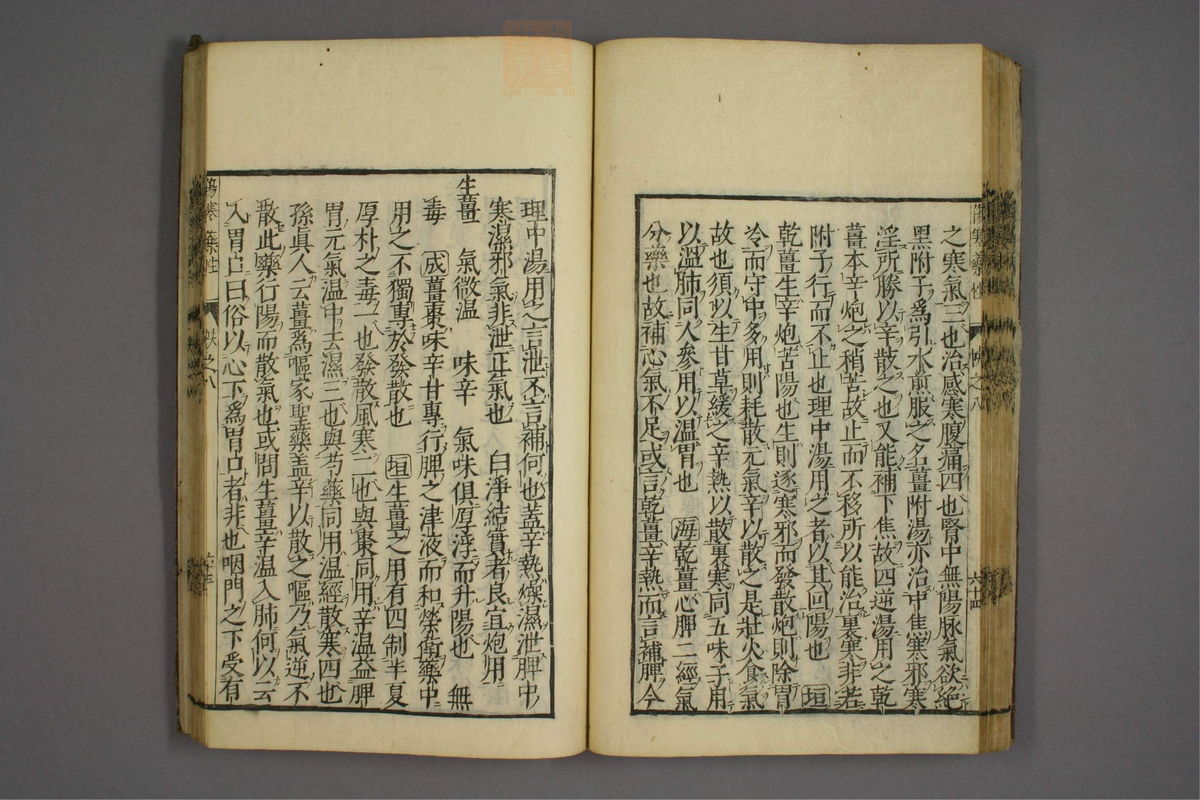 之寒氣三也治感寒腹痛四也腎中無陽脉氣欲絕
黑附子爲引水煎服之名薑附湯亦治中焦寒邪寒
淫所勝以辛散之也又能補下焦故四逆湯用之乾
薑本辛炮之稍苦故止而不移所以能治裏寒非若
附子行而不止也理中湯用之者以其回陽也 垣
乾薑生辛炮苦陽也生則逐寒邪而發散炮則除胃
冷而守中多用則耗散元氣辛以散之是壯火食氣
故也須以生甘草緩之辛熱以散裏寒同五味子用
以溫肺同人參用以溫胃也 海乾薑心脾二經氣
分藥也故補心氣不足或言乾薑辛熱而言補脾今
傷寒藥性 帙之八 六十四
理中湯用之言泄不言補何也蓋辛熱燥濕泄脾中
寒濕邪氣非泄正氣也 白淨結實者良宜炮用
生薑 氣微溫 味辛 氣味俱厚浮而升陽也 無
毒 成薑棗味辛甘專行脾之津液而和榮衛藥中
用之不獨專於發散也 垣生薑之用有四制半夏
厚朴之毒一也發散風寒二也與棗同用辛溫益脾
胃元氣溫中去濕三也與芍藥同用溫經散寒四也
孫眞人云薑爲嘔家聖藥盖辛以散之嘔乃氣逆不
散此藥行陽而散氣也或問生薑辛溫入肺何以云
入胃口曰俗以心下爲胃口者非也咽門之下受有
傷寒藥性 帙之八 六十三